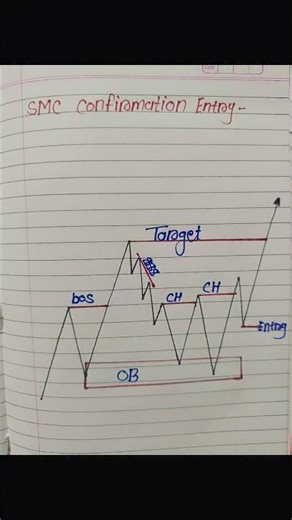 SMC Confiramation Entray-
Taraget
bos
CH
CH
Entray
OB